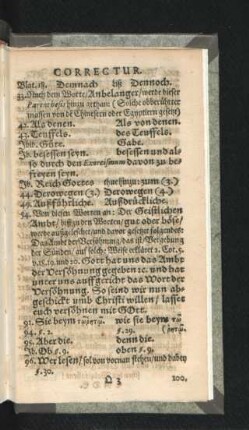 CORRECTUR.
Blat. 18. Demnach liß Dennoch.
33. Nach dem Worte / Anhelanger / werde dieser
Parenthesis hinzu gethan: (Solche obberührter
massen von dē Chinesern oder Egyptiern gesetzt)
42. Als denen. Als von denen.
43. Teuffels. des Teuffels.
Ibid. Güte. Gabe.
Ib. besessen seyn. besessen und al-
so durch den Exorcismum davon zu be-
freyen seyn.
Ib. Reich Gottes thue hinzu: zum (3.)
44. Derowegen (3.) Derowegen (4.)
49. Außführliche. Außdrückliche.
54. Von diesen Worten an: Der Geistlichen
Ambt / biß zu den Worten / gut oder böse /
werde außgelöschet und davor gesetzt folgendes
Das Ambt der Versöhnung / das ist / Vergebung
der Sünden / auf solche Weise erkläret 2. Cor. 5.
v. 18. 19. und 20. Gott hat uns das Ambt
der Versöhnung gegeben ꝛc. und hat
unter uns auffgericht das Wort der
Versöhnung. So sind wir nun ab-
geschickt umb Christi willen / lasset
euch versöhnen mit GOtt.
91. Sie beym wie sie beym
94. 5. 2. 5. 29.
96. Aber die. denn die.
Ib. Ob. 5. 9. oben 5. 9.
96. Wer lesen / sol von vornan stehen / und dabey
5. 30.
Q 3 100.